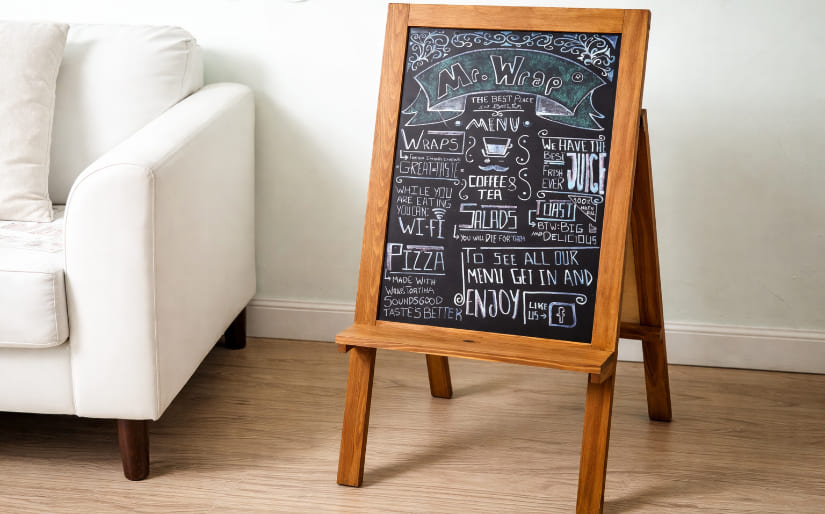 Mr. Wrap ®
THE BEST PLACE
MENU
WRAPS
GREAT TASTE
WHILE YOU
ARE EATING
YOU CAN:
WI-FI
PIZZA
MADE WITH
WRAP TORTILLA
SOUNDSGOOD
TASTES BETTER
COFFEE &
TEA
SALADS
YOU WILL DIE FOR THEM
WE HAVE THE
BEST
FRESH
EVER
JUICE
TOAST
100%
BTW: BIG
AND DELICIOUS
TO SEE ALL OUR
MENU GET IN AND
ENJOY
LIKE
US
f